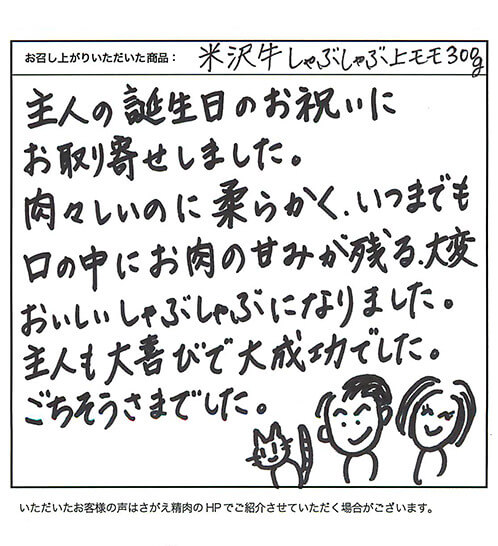 お召し上がりいただいた商品： 米沢牛しゃぶしゃぶ上モモ300g
主人の誕生日のお祝いに
お取り寄せしました。
肉々しいのに柔らかく、いつまでも
口の中にお肉の甘みが残る、大変
おいしいしゃぶしゃぶになりました。
主人も大喜びで大成功でした。
ごちそうさまでした。
いただいたお客様の声はさがえ精肉のHPでご紹介させていただく場合がございます。